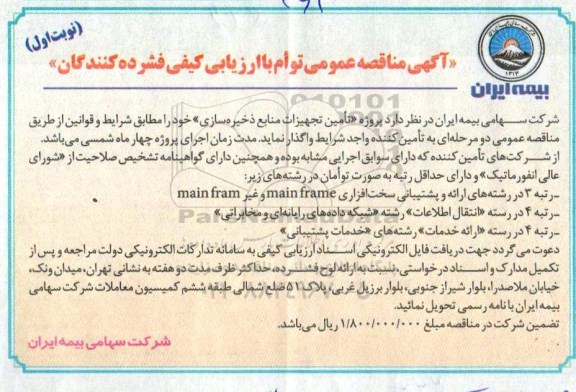 (نوبت اول)
«آگهی مناقصه عمومی توأم با ارزیابی کیفی فشرده کنندگان»
۱۳۱۴
بیمه ایران
شرکت سهامی بیمه ایران در نظر دارد پروژه «تأمین تجهیزات منابع ذخیره‌سازی» خود را مطابق شرایط و قوانین از طریق
مناقصه عمومی دو مرحله‌ای به تأمین کننده واجد شرایط واگذار نماید. مدت زمان اجرای پروژه چهار ماه شمسی می‌باشد.
از شرکت‌های تأمین کننده که دارای سوابق اجرایی مشابه بوده و همچنین دارای گواهینامه تشخیص صلاحیت از «شورای
عالی انفورماتیک» و دارای حداقل رتبه به صورت توأمان در رشته‌های زیر:
ـ رتبه ۳ در رشته‌های ارائه و پشتیبانی سخت‌افزاری main frame و غیر main fram
ـ رتبه ۴ در رسته «انتقال اطلاعات» رشته «شبکه داده‌های رایانه‌ای و مخابراتی»
ـ رتبه ۴ در رسته «ارائه خدمات» رشته‌های «خدمات پشتیبانی»
دعوت می‌گردد جهت دریافت فایل الکترونیکی اسناد ارزیابی کیفی به سامانه تدارکات الکترونیکی دولت مراجعه و پس از
تکمیل مدارک و اسناد درخواستی، نسبت به ارائه لوح فشرده، حداکثر ظرف مدت دو هفته به نشانی تهران، میدان ونک،
خیابان ملاصدرا، بلوار شیراز جنوبی، بلوار برزیل غربی، پلاک ۵۱ ضلع شمالی طبقه ششم کمیسیون معاملات شرکت سهامی
بیمه ایران با نامه رسمی تحویل نمائید.
تضمین شرکت در مناقصه مبلغ ۱/۸۰۰/۰۰۰/۰۰۰ ریال می‌باشد.
شرکت سهامی بیمه ایران